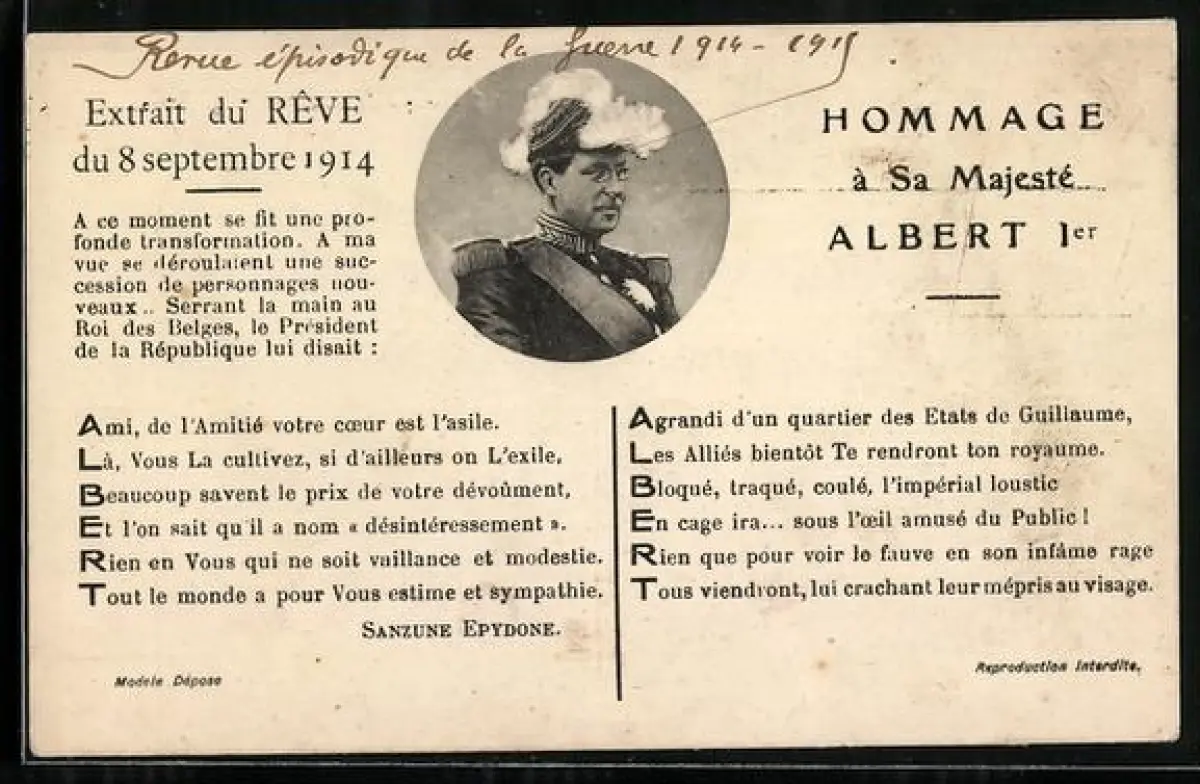 Revue épisodique de la Guerre 1914 - 1915.
Extrait du RÊVE
du 8 septembre 1914
A ce moment se fit une pro-
fonde transformation. A ma
vue se déroulaient une suc-
cession de personnages nou-
veaux.. Serrant la main au
Roi des Belges, le Président
de la République lui disait :
HOMMAGE
à Sa Majesté
ALBERT Ier
Ami, de l'Amitié votre cœur est l'asile.
Là, Vous La cultivez, si d'ailleurs on L'exile.
Beaucoup savent le prix de votre dévoûment,
Et l'on sait qu'il a nom « désintéressement ».
Rien en Vous qui ne soit vaillance et modestie.
Tout le monde a pour Vous estime et sympathie.
SANZUNE EPYDONE.
Agrandi d'un quartier des Etats de Guillaume,
Les Alliés bientôt Te rendront ton royaume.
Bloqué, traqué, coulé, l'impérial loustic
En cage ira... sous l'œil amusé du Public !
Rien que pour voir le fauve en son infâme rage
Tous viendront, lui crachant leur mépris au visage.
Modèle Déposé
Reproduction Interdite.